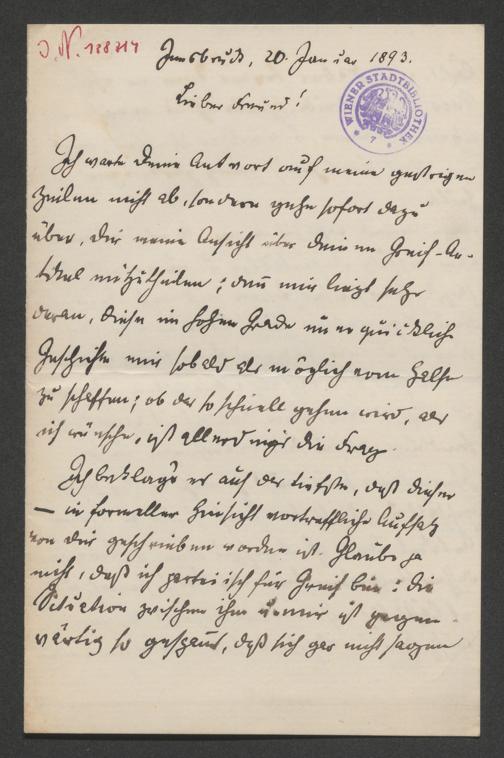 J. N. 138714
Innsbruck, 20. Januar 1893.
WIENER STADTBIBLIOTHEK
7
Lieber Freund!
Ich warte Deine Antwort auf meine gestrigen
Zeilen nicht ab, sondern gehe sofort dazu
über, Dir meine Ansicht über Deinen Greif-Ar-
tikel mitzutheilen; denn mir liegt sehr
daran, diese im hohen Grade unerquickliche
Geschichte mir sobald als möglich vom Halse
zu schaffen; ob das so schnell gehen wird, als
ich wünsche, ist allerdings die Frage.
Ich beklage es auf das tiefste, daß dieser
— in formeller Hinsicht vortreffliche Aufsatz
von Dir geschrieben worden ist. Glaube ja
nicht, daß ich parteiisch für Greif bin: die
Situation zwischen ihm u. mir ist gegen-
wärtig so gespannt, daß sich gar nicht sagen